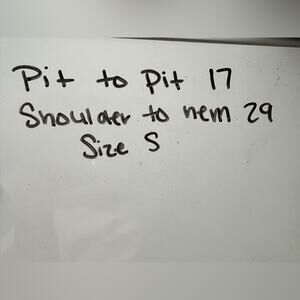 Pit to pit 17
Shoulder to hem 29
Size S